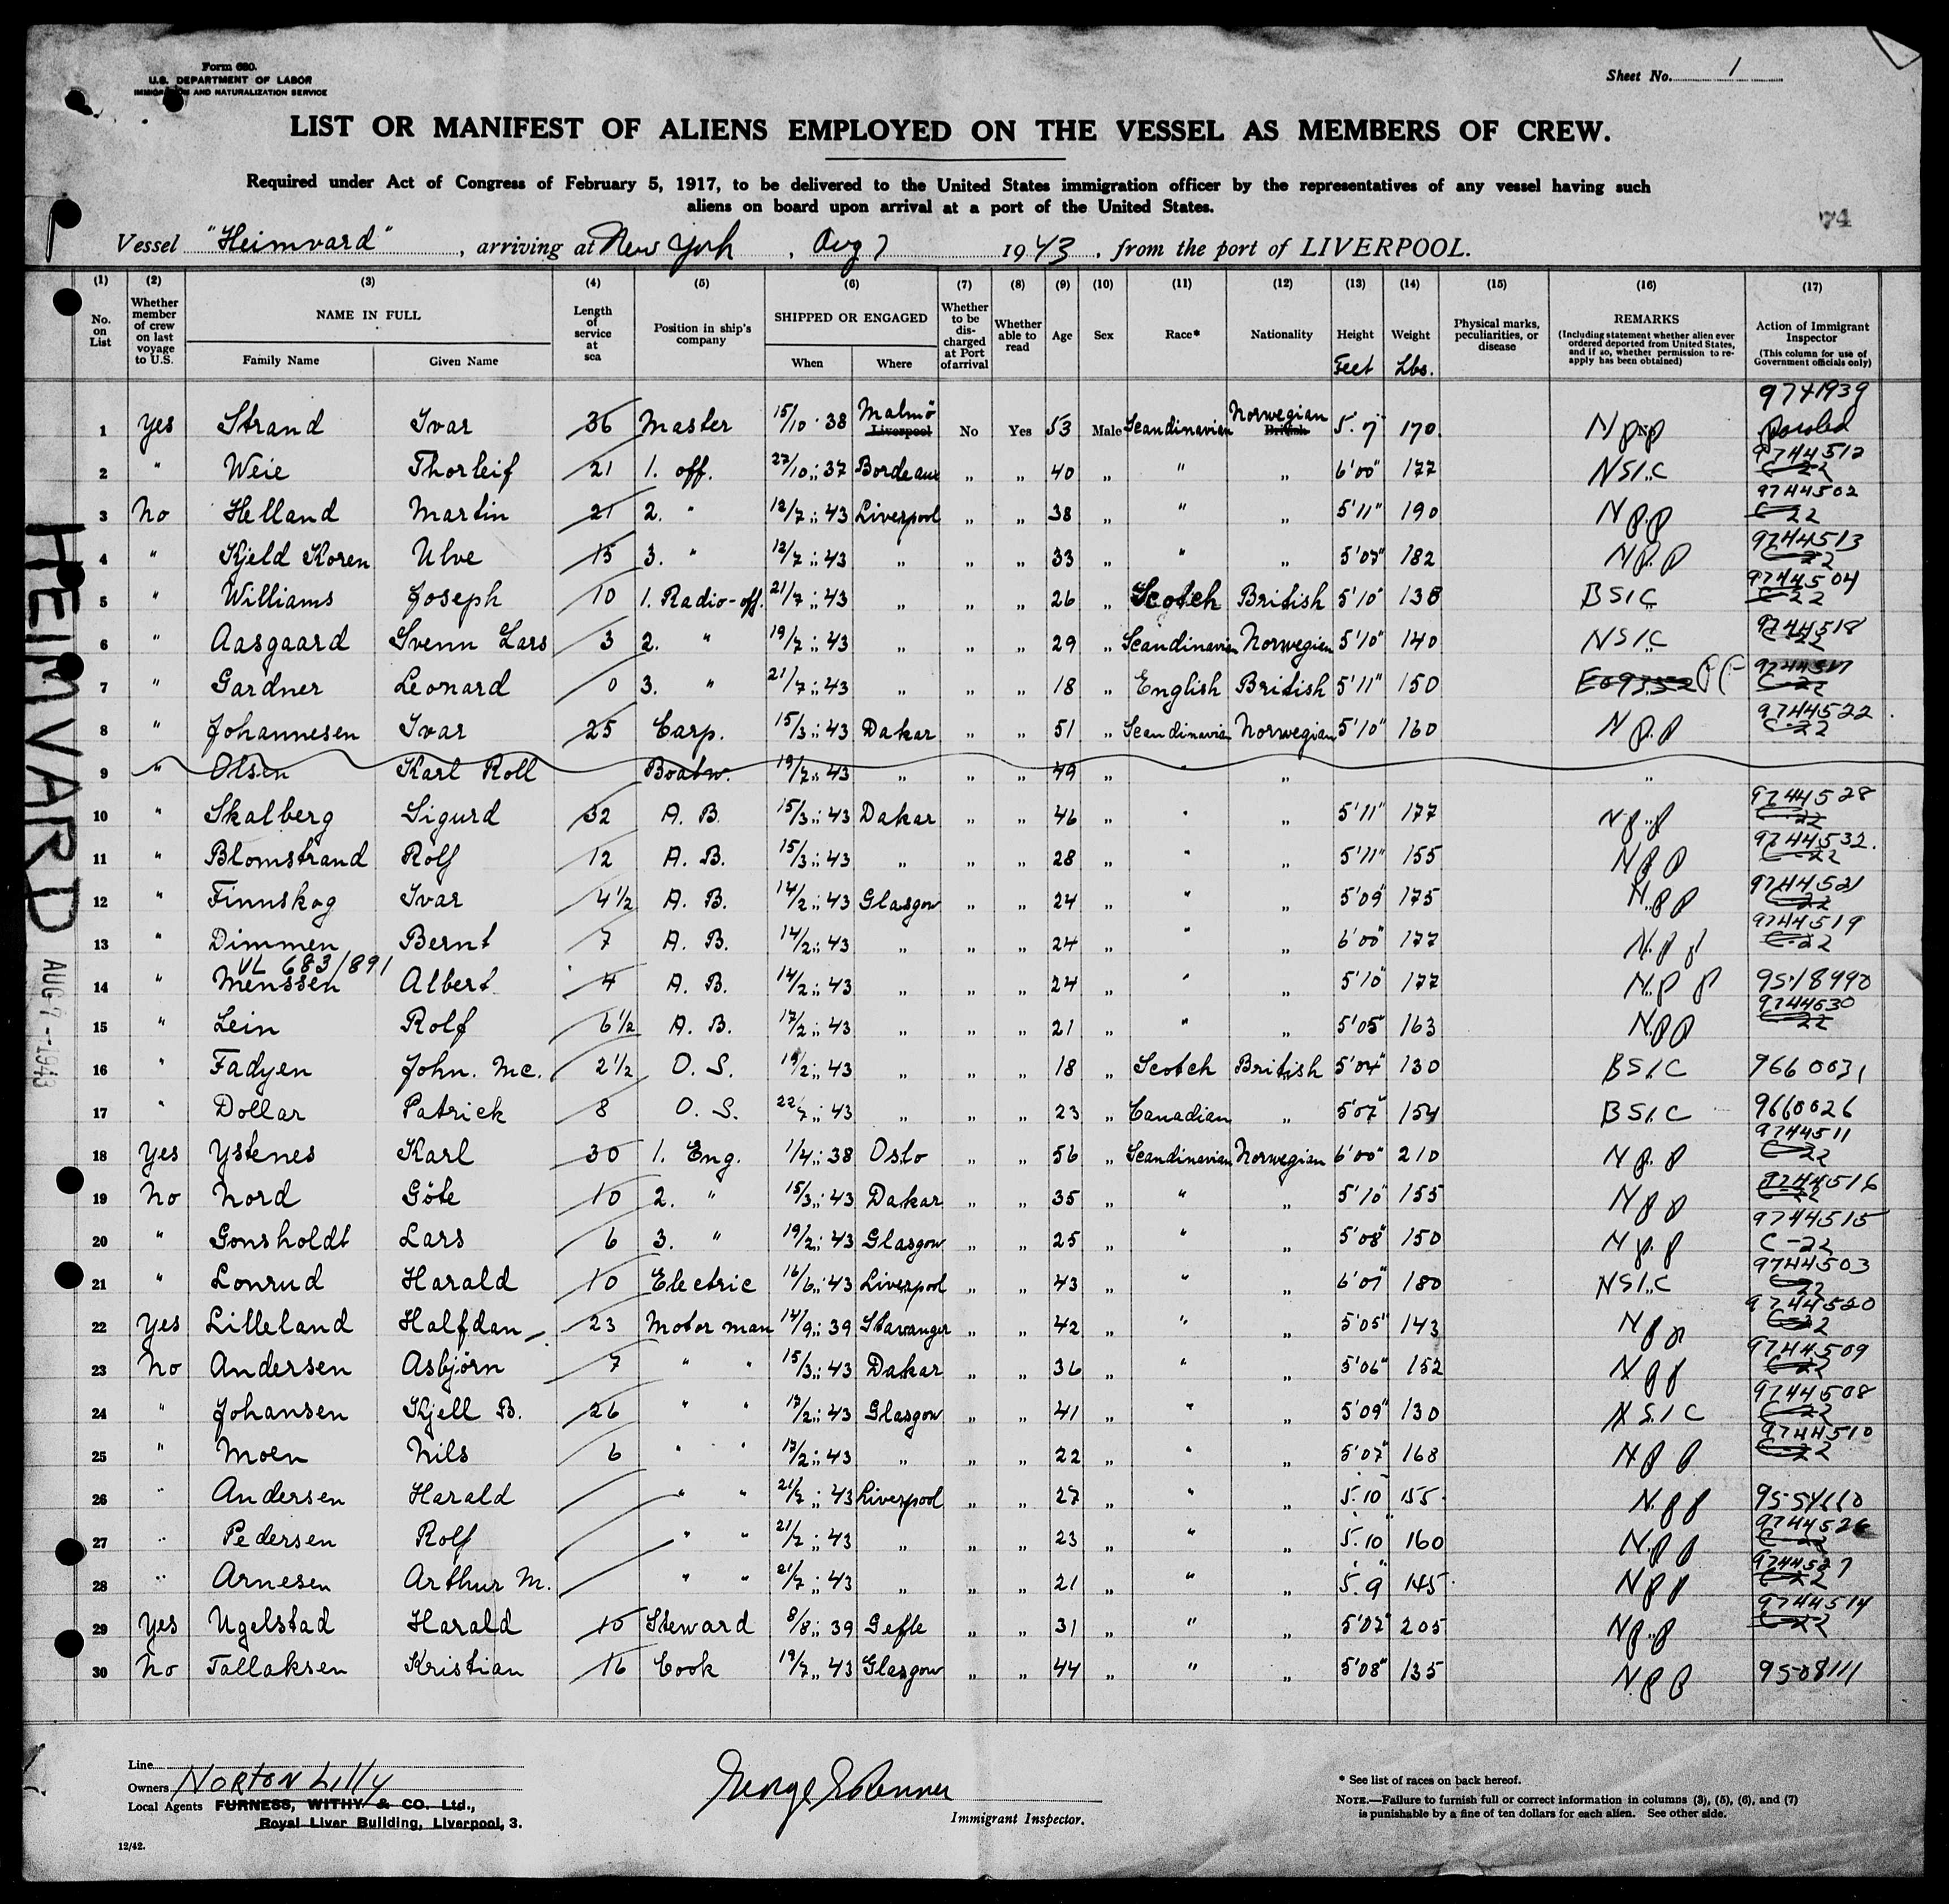 Form 680.
U.S. DEPARTMENT OF LABOR
IMMIGRATION AND NATURALIZATION SERVICE
Sheet No. 1
LIST OR MANIFEST OF ALIENS EMPLOYED ON THE VESSEL AS MEMBERS OF CREW.
Required under Act of Congress of February 5, 1917, to be delivered to the United States immigration officer by the representatives of any vessel having such
aliens on board upon arrival at a port of the United States.
74
Vessel "Heimvard", arriving at New York, Aug 7 1943, from the port of LIVERPOOL.
(1) (2) (3) (4) (5) (6) (7) (8) (9) (10) (11) (12) (13) (14) (15) (16) (17)
No. on List
Whether member of crew on last voyage to U.S.
NAME IN FULL
Family Name Given Name
Length of service at sea
Position in ship's company
SHIPPED OR ENGAGED
When Where
Whether to be discharged at Port of arrival
Whether able to read
Age
Sex
Race*
Nationality
Height
Feet
Weight
Lbs.
Physical marks, peculiarities, or disease
REMARKS
(Including statement whether alien ever ordered deported from United States, and if so, whether permission to reapply has been obtained)
Action of Immigrant Inspector
(This column for use of Government officials only)
9741939
1 Yes Strand Ivar 36 Master 15/10 . 38 Malmö Liverpool No Yes 53 Male Scandinavian Norwegian British 5.7 170 NPP paroled
2 " Weie Thorleif 21 1. off. 27/10 „ 37 Bordeaux „ „ 40 „ " „ 6'00" 177 NSIC 9744512 C-22
3 No Helland Martin 21 2. " 12/7 „ 43 Liverpool „ „ 38 „ " „ 5'11" 190 NPP 9744502 C-22
4 " Kjeld Koren Ulve 15 3. " 12/7 „ 43 „ „ „ 33 „ " „ 5'07" 182 NPP 9744513 C-22
5 " Williams Joseph 10 1. Radio-off. 21/7 „ 43 „ „ „ 26 „ Scotch British 5'10" 138 BSIC 9744504 C-22
6 " Aasgaard Svenn Lars 3 2. " 19/7 „ 43 „ „ „ 29 „ Scandinavian Norwegian 5'10" 140 NSIC 9744518 C-22
7 " Gardner Leonard 0 3. " 21/7 „ 43 „ „ „ 18 „ English British 5'11" 150 C-22
8 " Johannesen Ivar 25 Carp. 15/3 „ 43 Dakar „ „ 51 „ Scandinavian Norwegian 5'10" 160 NPP 9744522 C-22
9 " Olsen Karl Roll Boatw. 19/7 „ 43 „ „ „ 49 „ " „ „
10 " Skalberg Sigurd 32 A. B. 15/3 „ 43 Dakar „ „ 46 „ " „ 5'11" 177 NPP 9744528 C-22
11 " Blomstrand Rolf 12 A. B. 15/3 „ 43 „ „ „ 28 „ " „ 5'11" 155 NPP 9744532 C-22
12 " Finnskog Ivar 4½ A. B. 14/2 „ 43 Glasgow „ „ 24 „ " „ 5'09" 175 NPP 9744521 C-22
13 " Dimmen Bernt 7 A. B. 14/2 „ 43 „ „ „ 24 „ " „ 6'00" 177 NPP 9744519 C-22
VL 683/891
14 " Menssen Albert 4 A. B. 14/2 „ 43 „ „ „ 24 „ " „ 5'10" 177 NPP 9518990
15 " Lein Rolf 6½ A. B. 17/2 „ 43 „ „ „ 21 „ " „ 5'05" 163 NPP 9744630 C-22
16 " Fadyen John. Mc. 2½ O. S. 19/2 „ 43 „ „ „ 18 „ Scotch British 5'04" 130 BSIC 9660031
17 " Dollar Patrick 8 O. S. 22/7 „ 43 „ „ „ 23 „ Canadian „ 5'07" 154 BSIC 9660026
18 Yes Ystenes Karl 30 1. Eng. 1/4 „ 38 Oslo „ „ 56 „ Scandinavian Norwegian 6'00" 210 NPP 9744511 C-22
19 No Nord Göte 10 2. " 15/3 „ 43 Dakar „ „ 35 „ " „ 5'10" 155 NPP 9744516 C-22
20 " Gonsholdt Lars 6 3. " 19/2 „ 43 Glasgow „ „ 25 „ " „ 5'08" 150 NPP 9744515 C-22
21 " Lonrud Harald 10 Electric 16/6 „ 43 Liverpool „ „ 43 „ " „ 6'01" 180 NSIC 9744503 C-22
22 Yes Lilleland Halfdan 23 Motor man 14/9 „ 39 Stavanger „ „ 42 „ " „ 5'05" 143 NPP 9744520 C-22
23 No Andersen Asbjørn 7 " " 15/3 „ 43 Dakar „ „ 36 „ " „ 5'06" 152 NPP 9744509 C-22
24 " Johansen Kjell B. 26 " " 17/2 „ 43 Glasgow „ „ 41 „ " „ 5'09" 130 NSIC 9744508 C-22
25 " Moen Nils 6 " " 17/2 „ 43 „ „ „ 22 „ " „ 5'07" 168 NPP 9744510 C-22
26 " Andersen Harald " " 21/7 „ 43 Liverpool „ „ 27 „ " „ 5.10 155 NPP 9554660
27 " Pedersen Rolf " " 21/7 „ 43 „ „ „ 23 „ " „ 5.10 160 NPP 9744526 C-22
28 " Arnesen Arthur M. " " 21/7 „ 43 „ „ „ 21 „ " „ 5.9 145 NPP 9744527 C-22
29 Yes Ugelstad Harald 10 Steward 8/8 „ 39 Gefle „ „ 31 „ " „ 5'07" 205 NPP 9744514 C-22
30 No Tallaksen Kristian 16 Cook 19/7 „ 43 Glasgow „ „ 44 „ " „ 5'08" 135 NPP 9508111
HEIMVARD
AUG 7 - 1943
Line
Owners NORTON LILLY
Local Agents FURNESS, WITHY & CO. Ltd.,
Royal Liver Building, Liverpool, 3.
12/42.
Immigrant Inspector.
* See list of races on back hereof.
NOTE.—Failure to furnish full or correct information in columns (3), (5), (6), and (7)
is punishable by a fine of ten dollars for each alien. See other side.